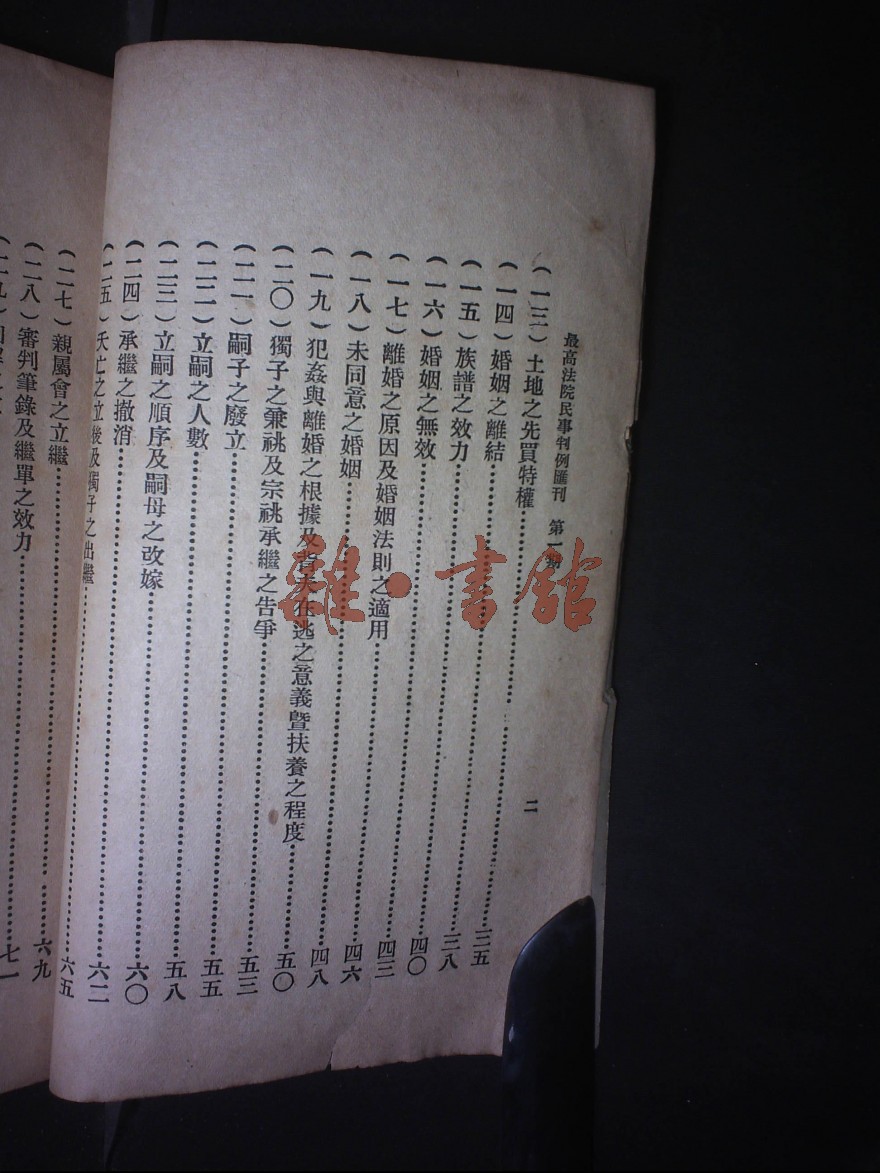 最高法院民事判例匯刊　第一期　二
（一三）土地之先買特權……三五
（一四）婚姻之離結……三八
（一五）族譜之效力……四〇
（一六）婚姻之無效……四三
（一七）離婚之原因及婚姻法則之適用……四六
（一八）未同意之婚姻……四八
（一九）犯姦與離婚之根據及背夫在逃之意義暨扶養之程度……五〇
（二〇）獨子之兼祧及宗祧承繼之告爭……五三
（二一）嗣子之廢立……五五
（二二）立嗣之人數……五八
（二三）立嗣之順序及嗣母之改嫁……六〇
（二四）承繼之撤消……六二
（二五）夭亡之立後及獨子之出繼……六五
（二七）親屬會之立繼……六九
（二八）審判筆錄及繼單之效力……七一
（二九）
雜·書館